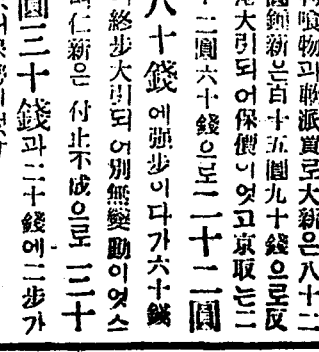 喰物과軟派賣로大新은八十二
鍾新은百十五圓九十錢으로反
大引되어保價이엇고京取는二
十二圓六十錢으로二十二圓
八十錢에强步이다가六十錢
終步大引되어別無變動이엇스
仁新은付止不成으로三十
圓三十錢과二十錢에二步가